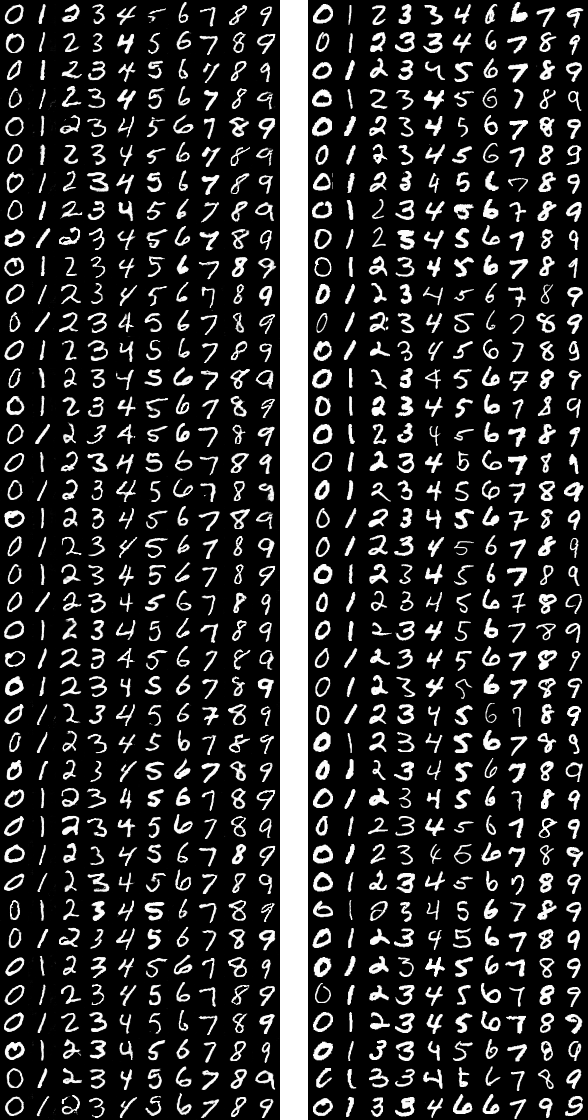 0 1 2 3 4 5 6 7 8 9
0 1 2 3 4 5 6 7 8 9
0 1 2 3 4 5 6 7 8 9
0 1 2 3 4 5 6 7 8 9
0 1 2 3 4 5 6 7 8 9
0 1 2 3 4 5 6 7 8 9
0 1 2 3 4 5 6 7 8 9
0 1 2 3 4 5 6 7 8 9
0 1 2 3 4 5 6 7 8 9
0 1 2 3 4 5 6 7 8 9
0 1 2 3 4 5 6 7 8 9
0 1 2 3 4 5 6 7 8 9
0 1 2 3 4 5 6 7 8 9
0 1 2 3 4 5 6 7 8 9
0 1 2 3 4 5 6 7 8 9
0 1 2 3 4 5 6 7 8 9
0 1 2 3 4 5 6 7 8 9
0 1 2 3 4 5 6 7 8 9
0 1 2 3 4 5 6 7 8 9
0 1 2 3 4 5 6 7 8 9
0 1 2 3 4 5 6 7 8 9
0 1 2 3 4 5 6 7 8 9
0 1 2 3 4 5 6 7 8 9
0 1 2 3 4 5 6 7 8 9
0 1 2 3 4 5 6 7 8 9
0 1 2 3 4 5 6 7 8 9
0 1 2 3 4 5 6 7 8 9
0 1 2 3 4 5 6 7 8 9
0 1 2 3 4 5 6 7 8 9
0 1 2 3 4 5 6 7 8 9
0 1 2 3 4 5 6 7 8 9
0 1 2 3 4 5 6 7 8 9
0 1 2 3 4 5 6 7 8 9
0 1 2 3 4 5 6 7 8 9
0 1 2 3 4 5 6 7 8 9
0 1 2 3 4 5 6 7 8 9
0 1 2 3 4 5 6 7 8 9
0 1 2 3 4 5 6 7 8 9
0 1 2 3 4 5 6 7 8 9
0 1 2 3 4 5 6 7 8 9
0 1 2 3 3 4 6 6 7 9
0 1 2 3 3 4 6 7 8 9
0 1 2 3 4 5 6 7 8 9
0 1 2 3 4 5 6 7 8 9
0 1 2 3 4 5 6 7 8 9
0 1 2 3 4 5 6 7 8 9
0 1 2 3 4 5 6 7 8 9
0 1 2 3 4 5 6 7 8 9
0 1 2 3 4 5 6 7 8 9
0 1 2 3 4 5 6 7 8 9
0 1 2 3 4 5 6 7 8 9
0 1 2 3 4 5 6 7 8 9
0 1 2 3 4 5 6 7 8 9
0 1 2 3 4 5 6 7 8 9
0 1 2 3 4 5 6 7 8 9
0 1 2 3 4 5 6 7 8 9
0 1 2 3 4 5 6 7 8 9
0 1 2 3 4 5 6 7 8 9
0 1 2 3 4 5 6 7 8 9
0 1 2 3 4 5 6 7 8 9
0 1 2 3 4 5 6 7 8 9
0 1 2 3 4 5 6 7 8 9
0 1 2 3 4 5 6 7 8 9
0 1 2 3 4 5 6 7 8 9
0 1 2 3 4 5 6 7 8 9
0 1 2 3 4 5 6 7 8 9
0 1 2 3 4 5 6 7 8 9
0 1 2 3 4 5 6 7 8 9
0 1 2 3 4 5 6 7 8 9
0 1 2 3 4 5 6 7 8 9
0 1 2 3 4 5 6 7 8 9
0 1 2 3 4 5 6 7 8 9
0 1 3 4 5 6 7 8 9
0 1 2 3 4 5 6 7 8 9
0 1 2 3 4 5 6 7 8 9
0 1 2 3 4 5 6 7 8 9
0 1 2 3 4 5 6 7 8 9
0 1 3 3 4 5 6 7 8 0
1 3 3 4 6 7 8 9
0 1 3 8 4 6 6 7 9 5